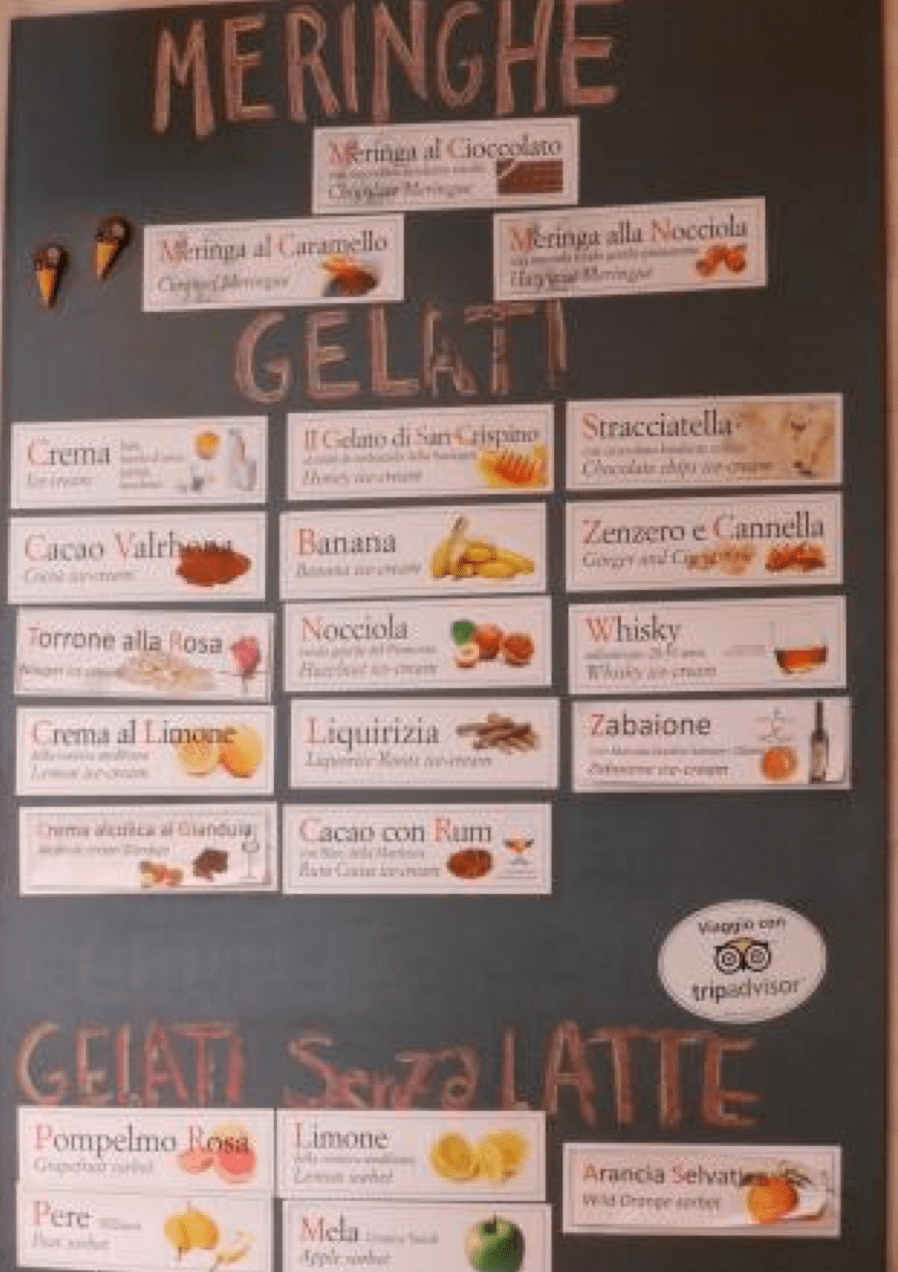 MERINGHE
Meringa al Cioccolato
Meringue
Meringa al Caramello
Meringue
Meringa alla Nocciola
Meringue
GELATI
Crema
Ice-cream
Il Gelato di San Crispino
Honey ice-cream
Stracciatella
Chocolate chips ice-cream
Cacao Valrhona
Cocoa ice-cream
Banana
Banana ice-cream
Zenzero e Cannella
Ginger and
Torrone alla Rosa
Nocciola
Hazelnut ice-cream
Whisky
Whisky ice-cream
Crema al Limone
Lemon ice-cream
Liquirizia
Liquorice Roots ice-cream
Zabaione
Zabaione ice-cream
Crema alcolica al Gianduia
Cacao con Rum
Rum Cocoa ice-cream
Viaggio con
tripadvisor
GELATI Senza LATTE
Pompelmo Rosa
Grapefruit sorbet
Limone
Lemon sorbet
Arancia Selvatica
Wild Orange sorbet
Pere
Pear sorbet
Mela
Apple sorbet